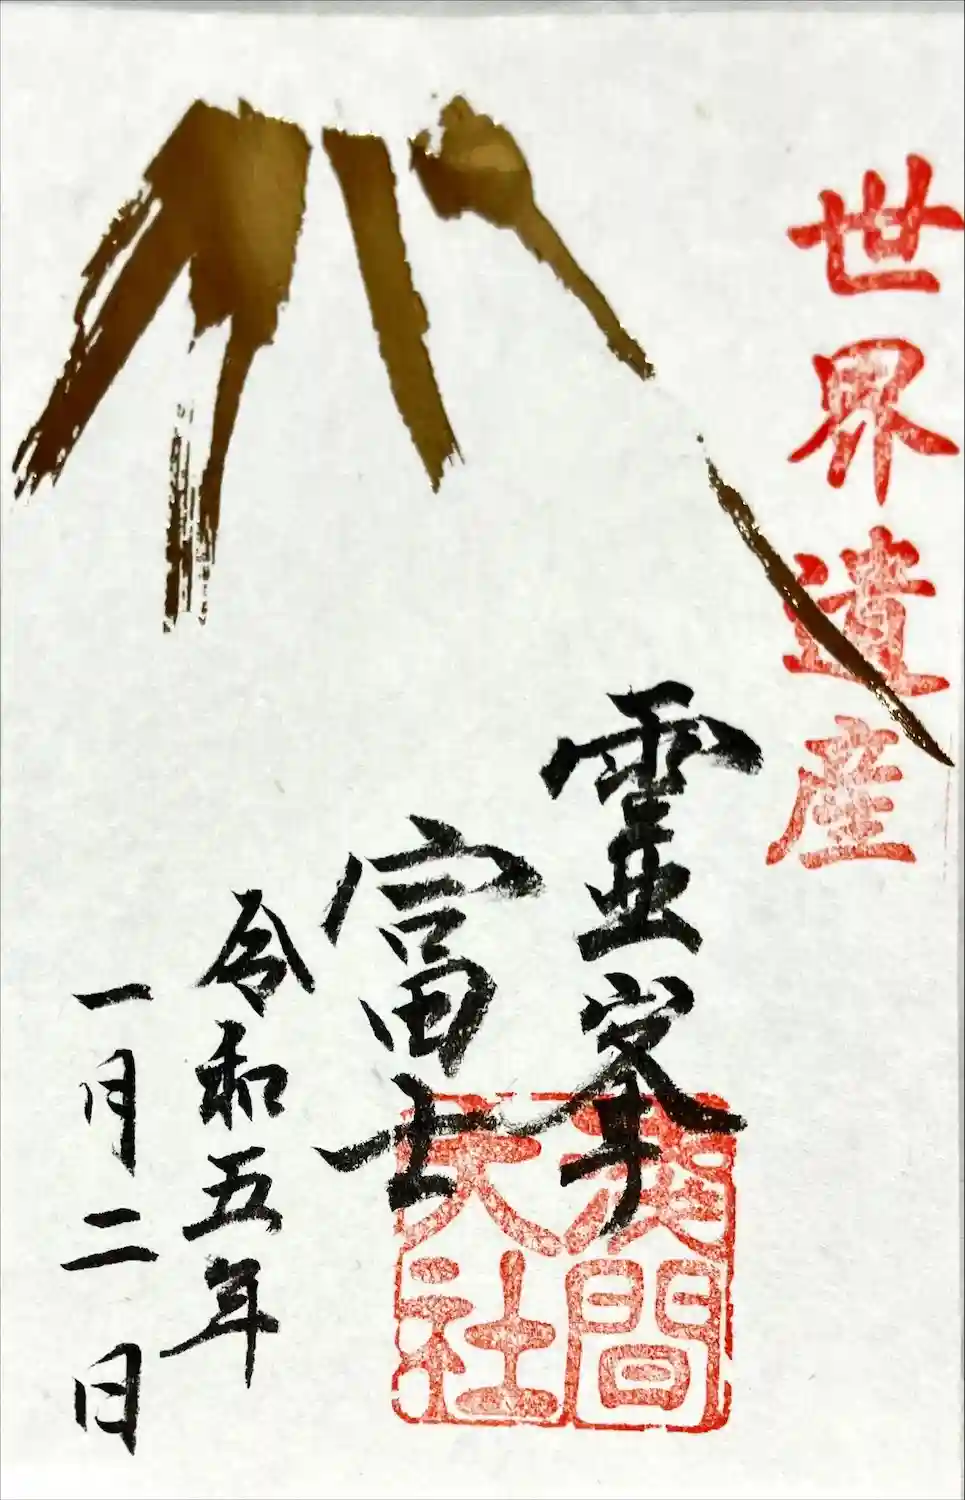 世界遺産
霊峯
富士
浅間
大社
令和五年
一月二日